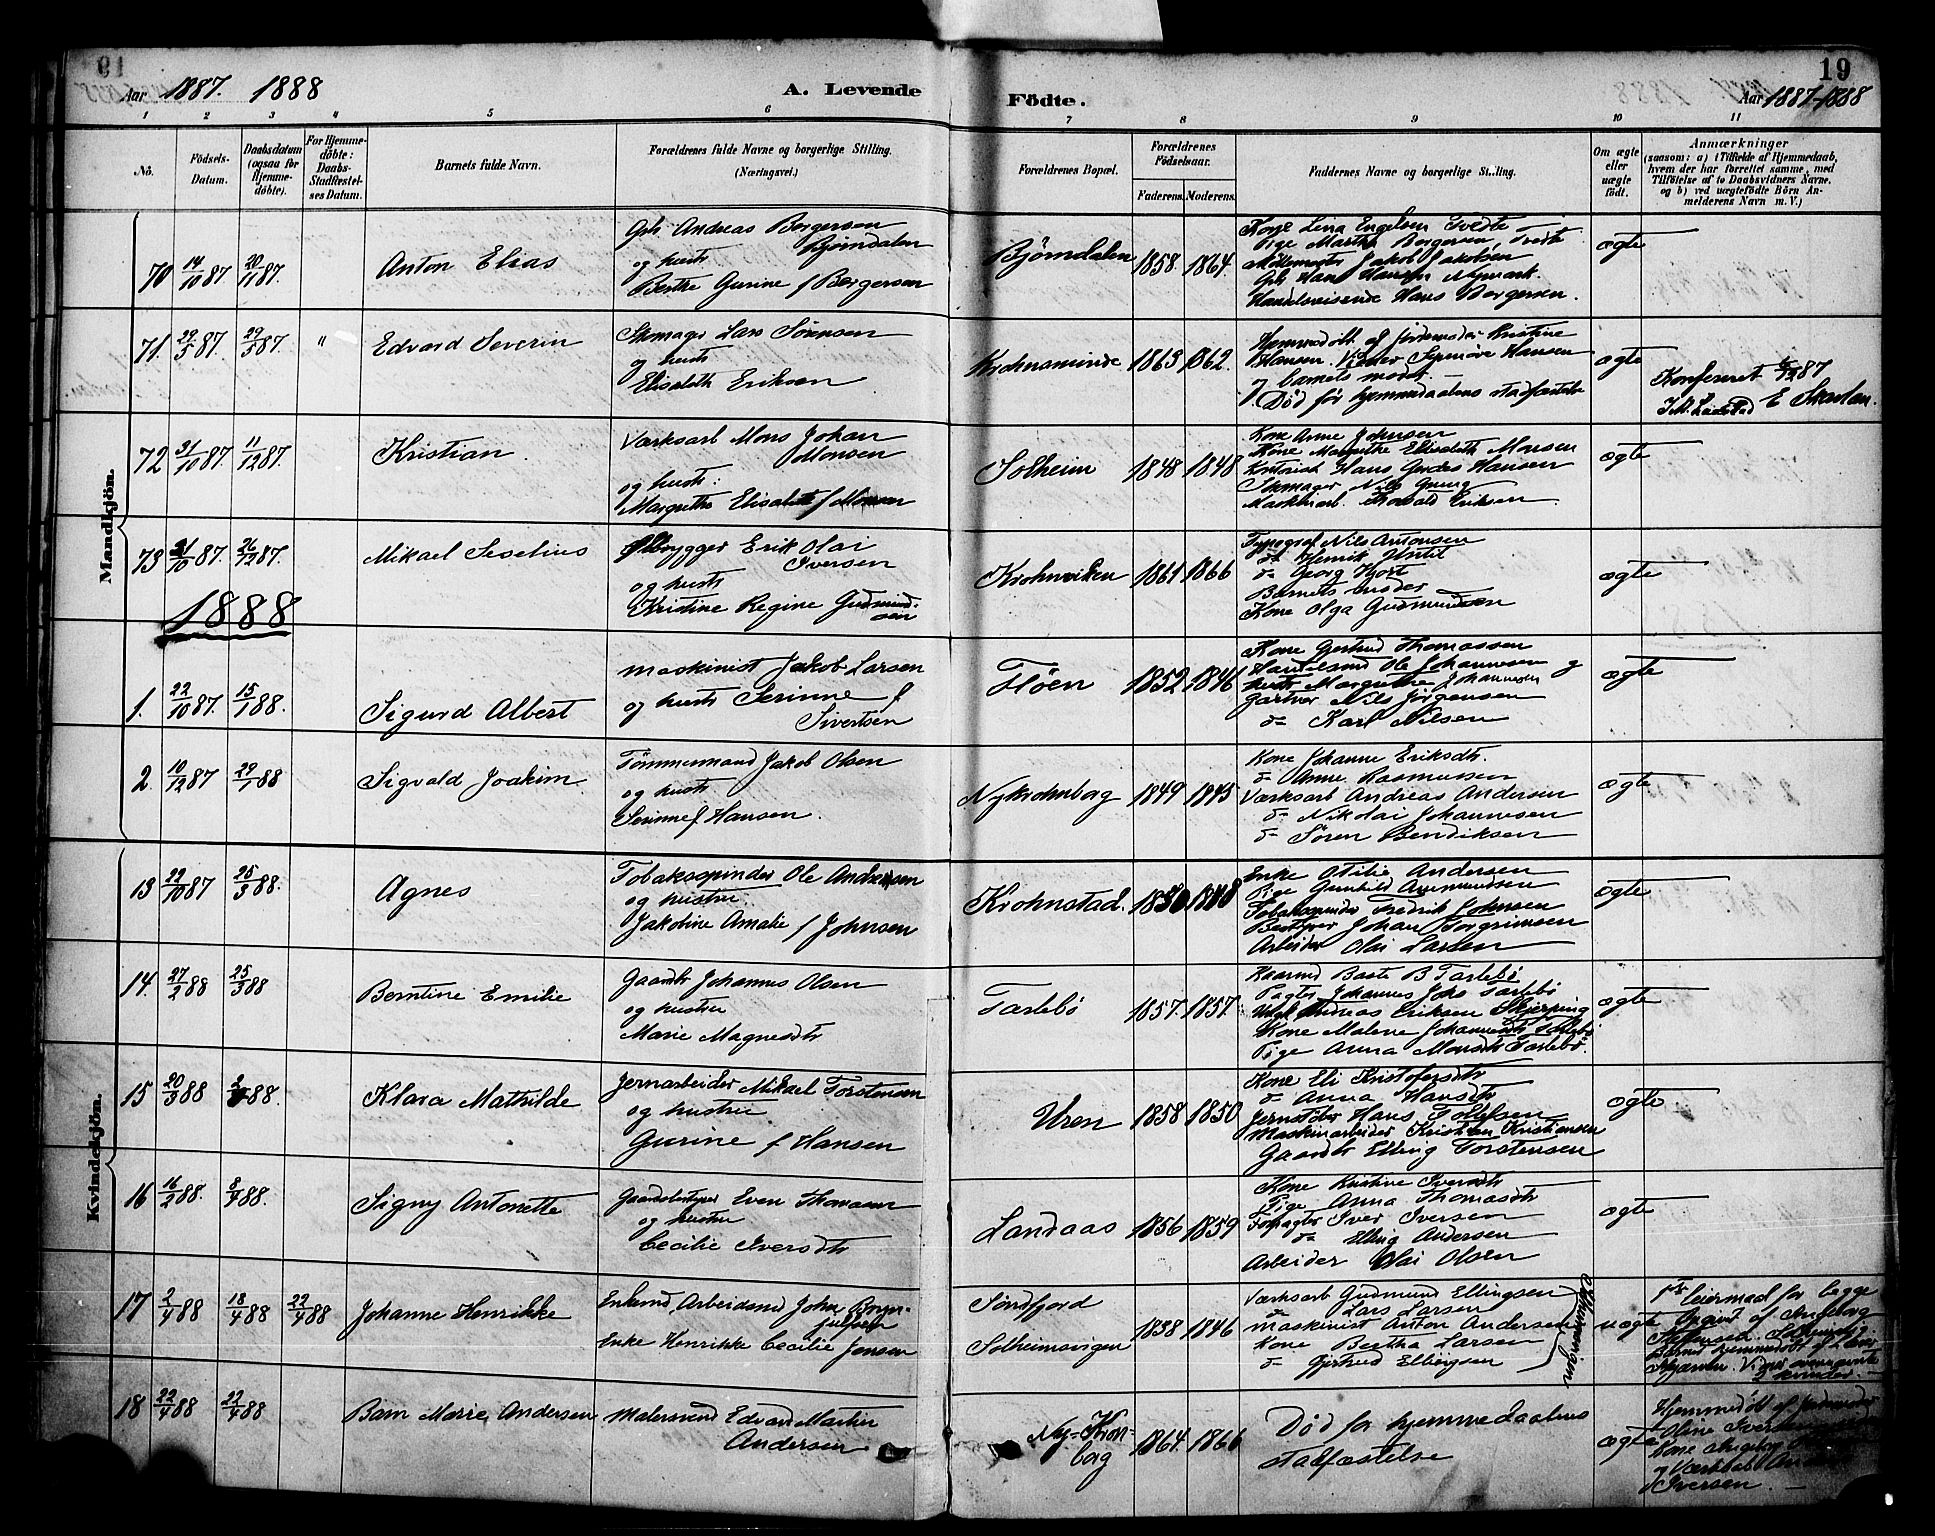 19
Aar 1887. 1888 A. Levende
Födte. Aar 1887-1888
1 2 3 4 5 6 7 8 9 10 11
No.
Födsels-Datum.
Daabsdatum (ogsaa for Hjemme-döbte).
For Hjemme-döbte: Daabs-Stadfæstelses Datum.
Barnets fulde Navn.
Forældrenes fulde Navne og borgerlige Stilling. (Næringsvei.)
Forældrenes Bopæl.
Forældrenes Födselsaar.
Faderens. Moderens.
Faddernes Navne og borgerlige Stilling.
Om ægte eller uægte födt.
Anmærkninger
(saasom: a) i Tilfælde af Hjemmedaab, hvem der har forrettet samme, med Tilföielse af to Daabsvidners Navne, og b) ved uægtefödte Börn Anmelderens Navn m. V.)
Mandkjön.
70 14/10 87 20/11 87. Anton Elias
Gb. Andreas Borgersen
Bjørndalen
og hustr
Berthe Gurine f Børgersen
Bjørndalen 1858. 1864.
Kone Lina Engelsen Tvedte
Pige Martha Borgersen, Tvedte
Møllemester Jakob Jakobsen
Gb Hans Hansen Nymark
Handelsreisende Hans Borgersen.
ægte
71. 29/5 87. 29/5 87. " Edvard Severin
Skomager Lars Sørensen
og hustr
Elisabeth Eriksen
Krohnsminde 1863 1862.
Hjemmedøbt af Jordemoder Kristine
Hansen. Vidner Severine Hansen
og barnets moder
Død før hjemmedaabens stadfæstelse
ægte
Konfereret 87
E Skavlan.
72 31/10 87. 11/12 87. Kristian.
Værksarb Mons Johan
Monsen
og hustr:
Margrethe Elisabeth f Monsen
Solheim 1848 1848
Kone Anne Johnsen
Kone Margrethe Elisabeth Monsen
Kontorist Hans Hansen
Skomager Nils
Maskinarb. Thorvald Eriksen
ægte
73 31/10 87 26/12 87. Mikael Neselius
Ølbrygger Erik Olai
Iversen
og hustr
Kristine Regine Gudmund-
sen
Krohnviken 1861 1866
Typograf Nils Antonsen
d= Henrik
d= Georg Hjort
Barnets moder
Kone Olga Gudmundsen
ægte
1888
1. 22/10 87. 15/1 88. Sigurd Albert
Maskinist Jakob Larsen
og hustr Serinne f
Sivertsen
Fløen 1852 1846
Kone Gertrud Thomassen
Handelsmd Ole Johannesen og
hustr Margrethe Johannesen
Gartner Nils Jørgensen
d= Karl Nilsen
ægte
2. 10/12 87 29/1 88 Sigvald Joakim
Tømmermand Jakob Olsen
og hustr
Serinne f Hansen.
Nykrohnborg 1849 1845
Kone Johanne Eriksdtr.
d= Anne Rasmussen
Værksarb Andreas Andersen
d= Nikolai Johannesen
d= Søren Bendiksen
ægte
Kvindekjön.
13 22/10 87 25/3 88. Agnes
Tobakspinder Ole Andersen
og hustru
Jakobine Amalie f Johnsen
Krohnstad. 1850 1848
Enke Otilie Andersen
Pige Gunhild Aamundsen
Tobakspinder Fredrik Johnsen
Bestyrer Johan Torgrimsen
Arbeider Olai Larsen
ægte
14. 27/2 88 25/3 88 Berntine Emilie
Gaardbr Johannes Olsen
og hustru
Marie Magnesdtr
Tarlebø 1857. 1857.
Kaarmd Baste B Tarlebø
Pagter Johannes Johs Tarlebø
Andreas Eriksen Skjerping
Kone Malene Johannesdtr Tarlebø
Pige Anna Monsdtr Tarlebø.
ægte
15 20/3 88 88. Klara Mathilde
Jernarbeider Mikael Torstensen
og hustru
Gurine f Hansen
Uren 1858 1850
Kone Eli Kristofersdtr
d= Anna Hansdtr
Jernstøber Hans Tollefsen
Maskinarbeider Kristian Kristiansen
Gaardbr Elling Torstensen
ægte
16 16/2 88. 8/4 88. Signy Antonette
Gaardsbestyrer Even Thomassen
og hustru
Cecilie Iversdtr
Landaas 1856 1859
Kone Kristine Iversdtr
Pige Anna Thomasdtr
Forpagter Iver Iversen
d= Elling Andersen
Arbeider Olai Olsen
ægte
17 2/4 88 18/4 88 22/4 88 Johanne Henrikke
Enkemd, Arbeidsmd John Bryn-
julfsen
Enke Henrikke Cecilie Jonsen
Søndfjord
Solheimsvigen
1838 1846
Værksarb Gudmund Ellingsen
d= Lars Larsen
Maskinist Anton Andersen
Kone Bertha Larsen
d= Gjertrud Ellingsen
Solheimsvigen
uægte
1ste leiermaal for begge
18 22/4 88 22/4 88 Barn Marie, Andersen
Malersvend Edvard Martin
Andersen
Ny-Kron-
borg
1864. 1866
Død før hjemmedaabens
stadfæstelse
ægte
Hjemmedøbt af Jordmoder
Oline Iversen
Iversen.